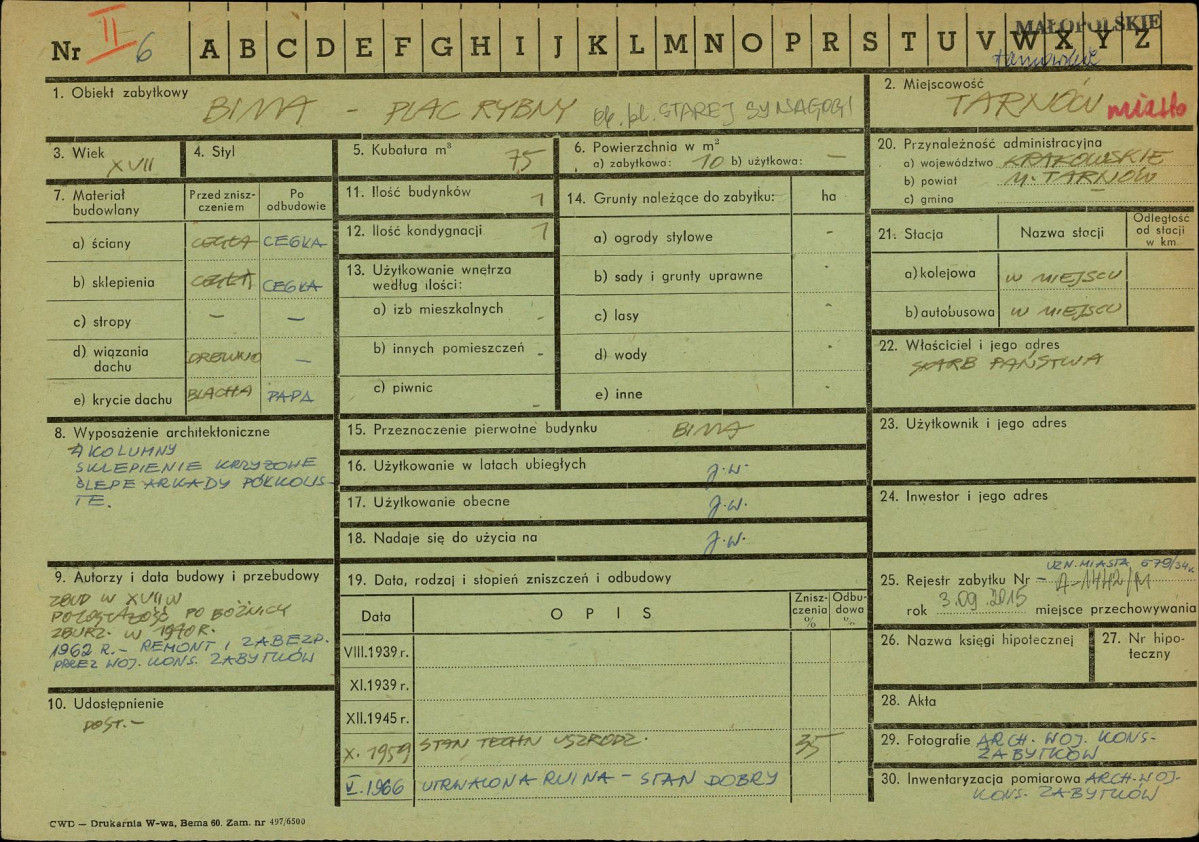 Nr II 6 A B C D E F G H I J K L M N O P R S T U V W X Y Z
MAŁOPOLSKIE
1. Obiekt zabytkowy BIMA - PLAC RYBNY ob. pl. STAREJ SYNAGOGI
2. Miejscowość
TARNÓW miasto
3. Wiek
XVII
4. Styl
5. Kubatura m³ 75
6. Powierzchnia w m²
a) zabytkowa: 10 b) użytkowa: -
20. Przynależność administracyjna
a) województwo KRAKOWSKIE
b) powiat M. TARNÓW
c) gmina
7. Materiał budowlany
Przed znisz-
czeniem
Po
odbudowie
a) ściany CEGŁA CEGŁA
b) sklepienia CEGŁA CEGŁA
c) stropy - -
d) wiązania
dachu DREWNO -
e) krycie dachu BLACHA PAPA
11. Ilość budynków 1
12. Ilość kondygnacji 1
13. Użytkowanie wnętrza
według ilości:
a) izb mieszkalnych -
b) innych pomieszczeń -
c) piwnic -
14. Grunty należące do zabytku: ha
a) ogrody stylowe -
b) sady i grunty uprawne -
c) lasy -
d) wody -
e) inne -
21. Stacja Nazwa stacji
Odległość
od stacji
w km
a) kolejowa W MIEJSCU
b) autobusowa W MIEJSCU
22. Właściciel i jego adres
SKARB PAŃSTWA
8. Wyposażenie architektoniczne
4 KOLUMNY
SKLEPIENIE KRZYŻOWE
ŚLEPE ARKADY PÓŁKOLIS-
TE.
15. Przeznaczenie pierwotne budynku BIMA
16. Użytkowanie w latach ubiegłych J.W.
17. Użytkowanie obecne J.W.
18. Nadaje się do użycia na J.W.
23. Użytkownik i jego adres
24. Inwestor i jego adres
9. Autorzy i data budowy i przebudowy
ZBUD W XVII W
POZOSTAŁOŚĆ PO BÓŻNICY
ZBURZ. W 1940 R.
1962 R. - REMONT I ZABEZP.
PRZEZ WOJ. KONS. ZABYTKÓW
10. Udostępnienie
DOST. -
19. Data, rodzaj i stopień zniszczeń i odbudowy
Data OPIS
Znisz-
czenia
%
Odbu-
dowa
%
VIII.1939 r.
XI.1939 r.
XII.1945 r.
X. 1959 STAN TECHN USZKODZ. 35
V. 1966 UTRWALONA RUINA - STAN DOBRY
UZN. MIASTA 679/34
25. Rejestr zabytku Nr - A-1442/M
rok 3.09.2015 miejsce przechowywania
26. Nazwa księgi hipotecznej
27. Nr hipo-
teczny
28. Akta
29. Fotografie ARCH. WOJ. KONS-
ZABYTKÓW
30. Inwentaryzacja pomiarowa ARCH. WOJ-
KONS. ZABYTKÓW
CWD — Drukarnia W-wa, Bema 60. Zam. nr 497/6500